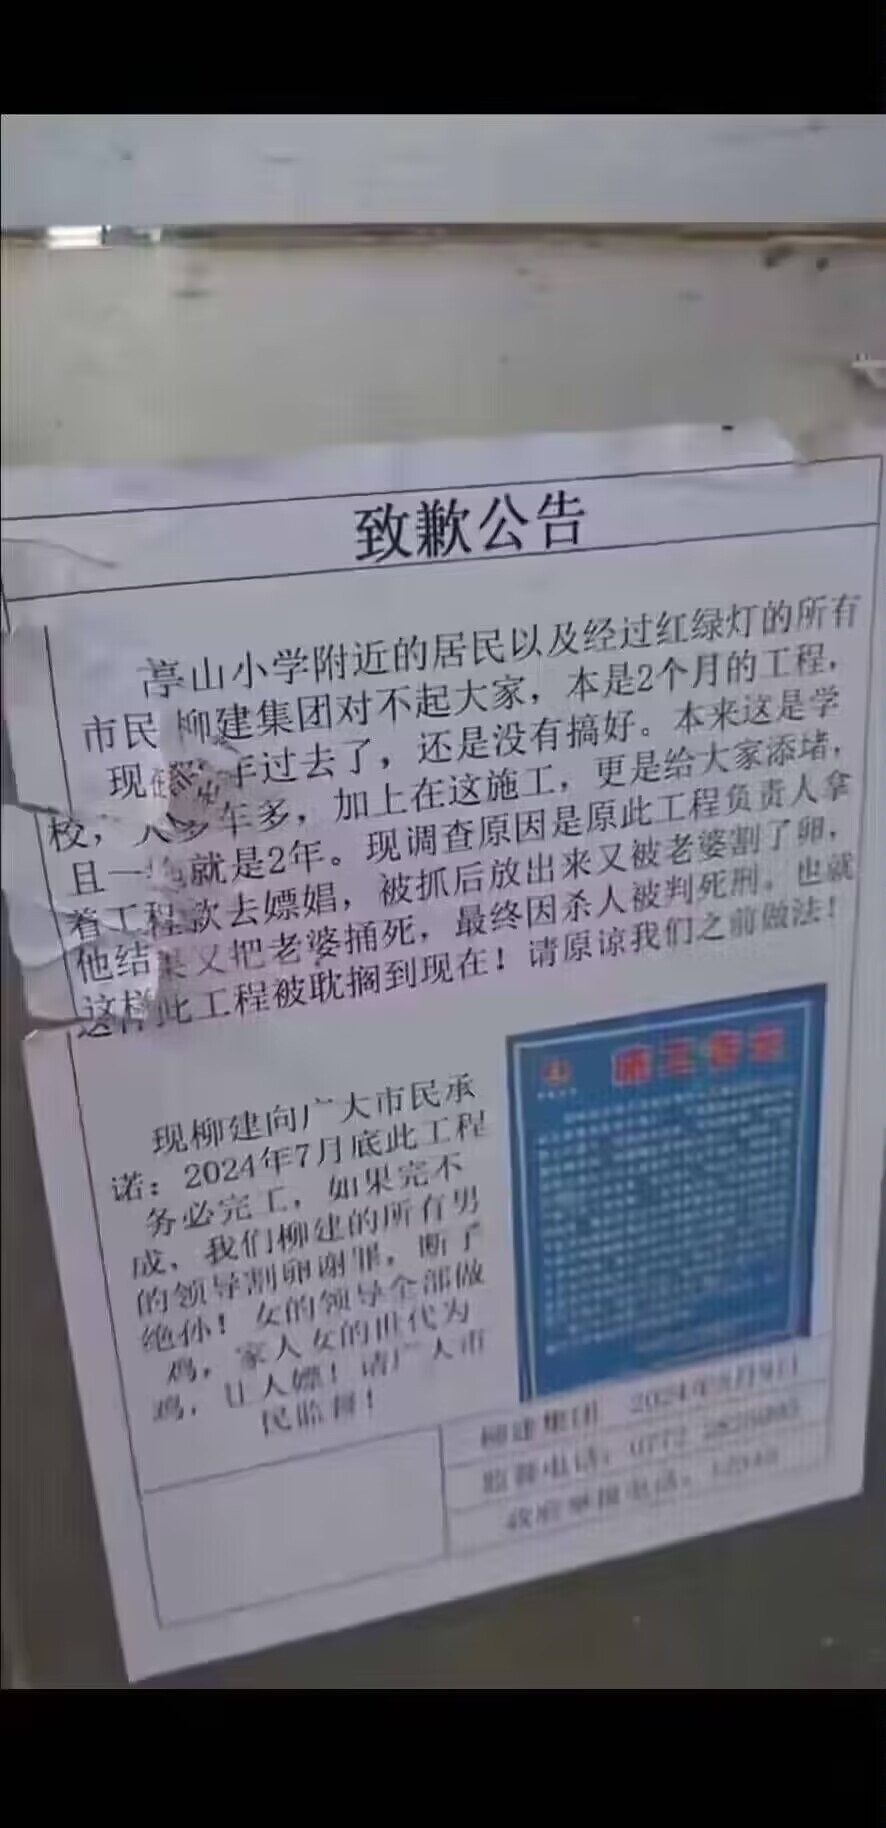 致歉公告
亭山小学附近的居民以及经过红绿灯的所有
市民 柳建集团对不起大家，本是2个月的工程，
现在 年过去了，还是没有搞好。本来这是学
校，人多车多，加上在这施工，更是给大家添堵，
且一 就是2年。现调查原因是原此工程负责人拿
着工程款去嫖娼，被抓后放出来又被老婆割了卵，
他结果又把老婆捅死，最终因杀人被判死刑。也就
这样此工程被耽搁到现在！请原谅我们之前做法！
现柳建向广大市民承
诺：2024年7月底此工程
务必完工，如果完不
成，我们柳建的所有男
的领导割卵谢罪，断子
绝孙！女的领导全部做
鸡，家人女的世代为
鸡，让人嫖！请广大市
民监督！
施工告示
柳建集团 2024年5月9日
监督电话：0772
政府举报电话：